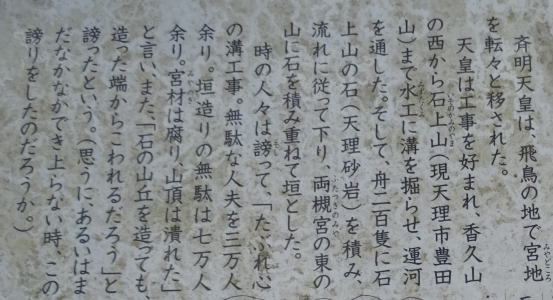 斉明天皇は、飛鳥の地で宮地
を転々と移された。
天皇は工事を好まれ、香久山
の西から石上山(現天理市豊田
山)まで水工に溝を掘らせ、運河
を通した。そして、舟二百隻に石
上山の石(天理砂岩)を積み、
流れに従って下り、両槻宮の東の
山に石を積み重ねて垣とした。
時の人々は謗って、「たぶれ心
の溝工事。無駄な人夫を三万人
余り。垣造りの無駄は七万人
余り。宮材は腐り、山頂は潰れた」
と言い、また、「石の山丘を造っても、
造った端からこわれるだろう」と
謗ったという。(思うに、あるいはま
だなかなかでき上らない時、この
謗りをしたのだろうか。)